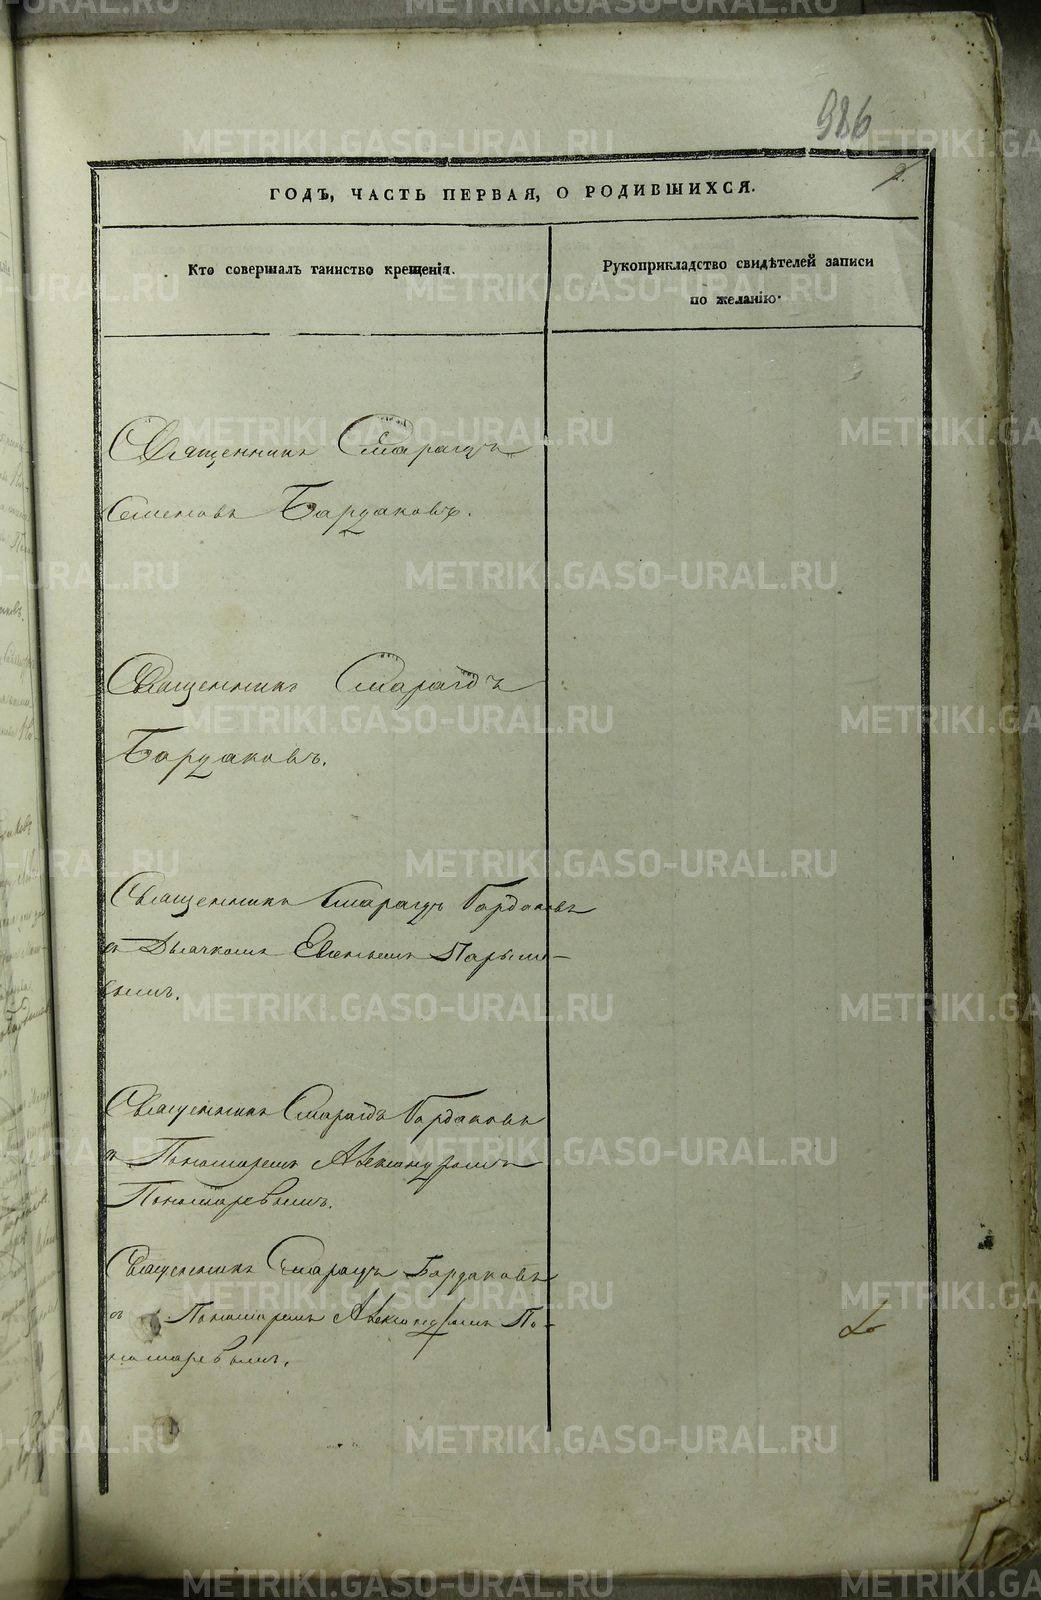 986
2.
ГОДЪ, ЧАСТЬ ПЕРВАЯ, О РОДИВШИХСЯ.
Кто совершалъ таинство крещенія.
Рукоприкладство свидѣтелей записи
по желанію.
Священникъ Смарагдъ
Семеновъ Бардаковъ.
Священникъ Смарагдъ
Бардаковъ.
Священникъ Смарагдъ Бардаковъ
съ Дьячкомъ Парыше-
вымъ.
Священникъ Смарагдъ Бардаковъ
съ Пономаремъ Александромъ
Пономаревымъ.
Священникъ Смарагдъ Бардаковъ
съ Пономаремъ Александромъ По-
номаревымъ.
METRIKI.GASO-URAL.RU